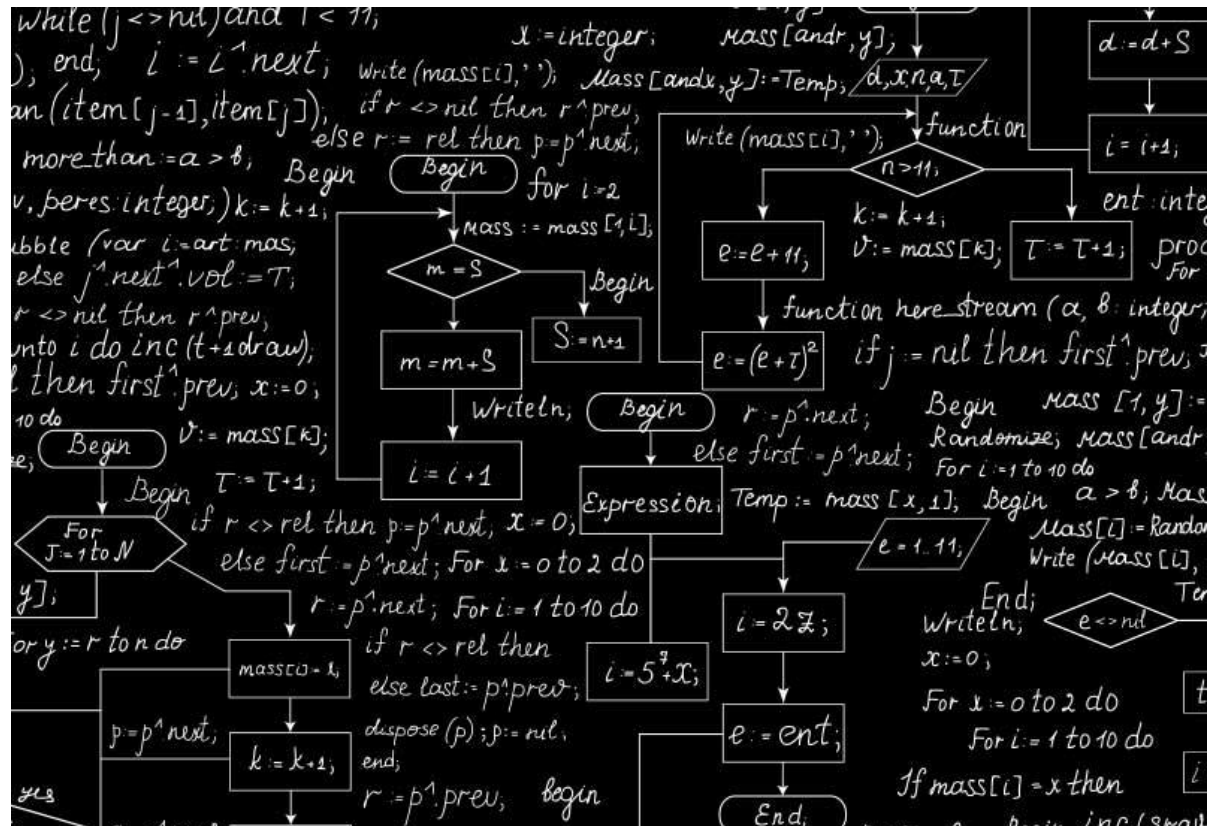 while (j <> nil) and i < 11;
); end; i := i^.next;
an (item[j-1], item[j]);
more_than := a > b;
v, peres: integer;) k := k+1;
ubble (var i:=art: mas;
else j^.next^.vol := T;
r <> nil then r^prev,
unto i do inc (t+1draw),
l then first^.prev; x:=0;
10 do
Begin
v:= mass[k];
Begin
τ := τ+1;
For
J:=1 to N
y];
or y:=r to n do
mass[i]=
p:=p^next;
k:=k+1;
yes
x:=integer;
Write (mass[i],' ');
if r <> nil then r^prev;
else r := rel then p=p^.next;
Begin
Begin
for i:=2
mass := mass [1,i];
m = S
Begin
S:=n+1
m = m+S
Writeln;
i:= i+1
if r <> rel then p:=p^next, x:=0;
else first :=p^next; For x:=0 to 2 do
r :=p^.next; For i:=1 to 10 do
if r <> rel then
else last:=p^.prev;
dispose (p); p:=nil;
end;
r :=p^.prev; begin
mass [andr, y];
Mass [andx, y]:=Temp;
d,x,n,a,τ
Write (mass[i],' ');
function
n>11;
e:=e+11;
k:=k+1;
v:= mass[k];
τ:=τ+1;
e:=(e+τ)²
function here_stream (a, b: integer;
if j := nil then first^.prev;
Begin
r:=p^.next;
else first :=p^next;
Expression;
Temp := mass [x,1];
e=1..11;
i=2Z;
i=5⁷+x;
e:=ent;
End;
d:=d+S
i=i+1;
ent: inte
proc
For
Begin
Mass [1,y]:=
Randomize; Mass[andr
For i:=1 to 10 do
Begin
a > b; Mas
Mass[i]:=Randor
Write (Mass[i],
End;
Writeln;
e<>nil
x:=0;
For x:=0 to 2 do
For i:=1 to 10 do
If mass[i]=x then